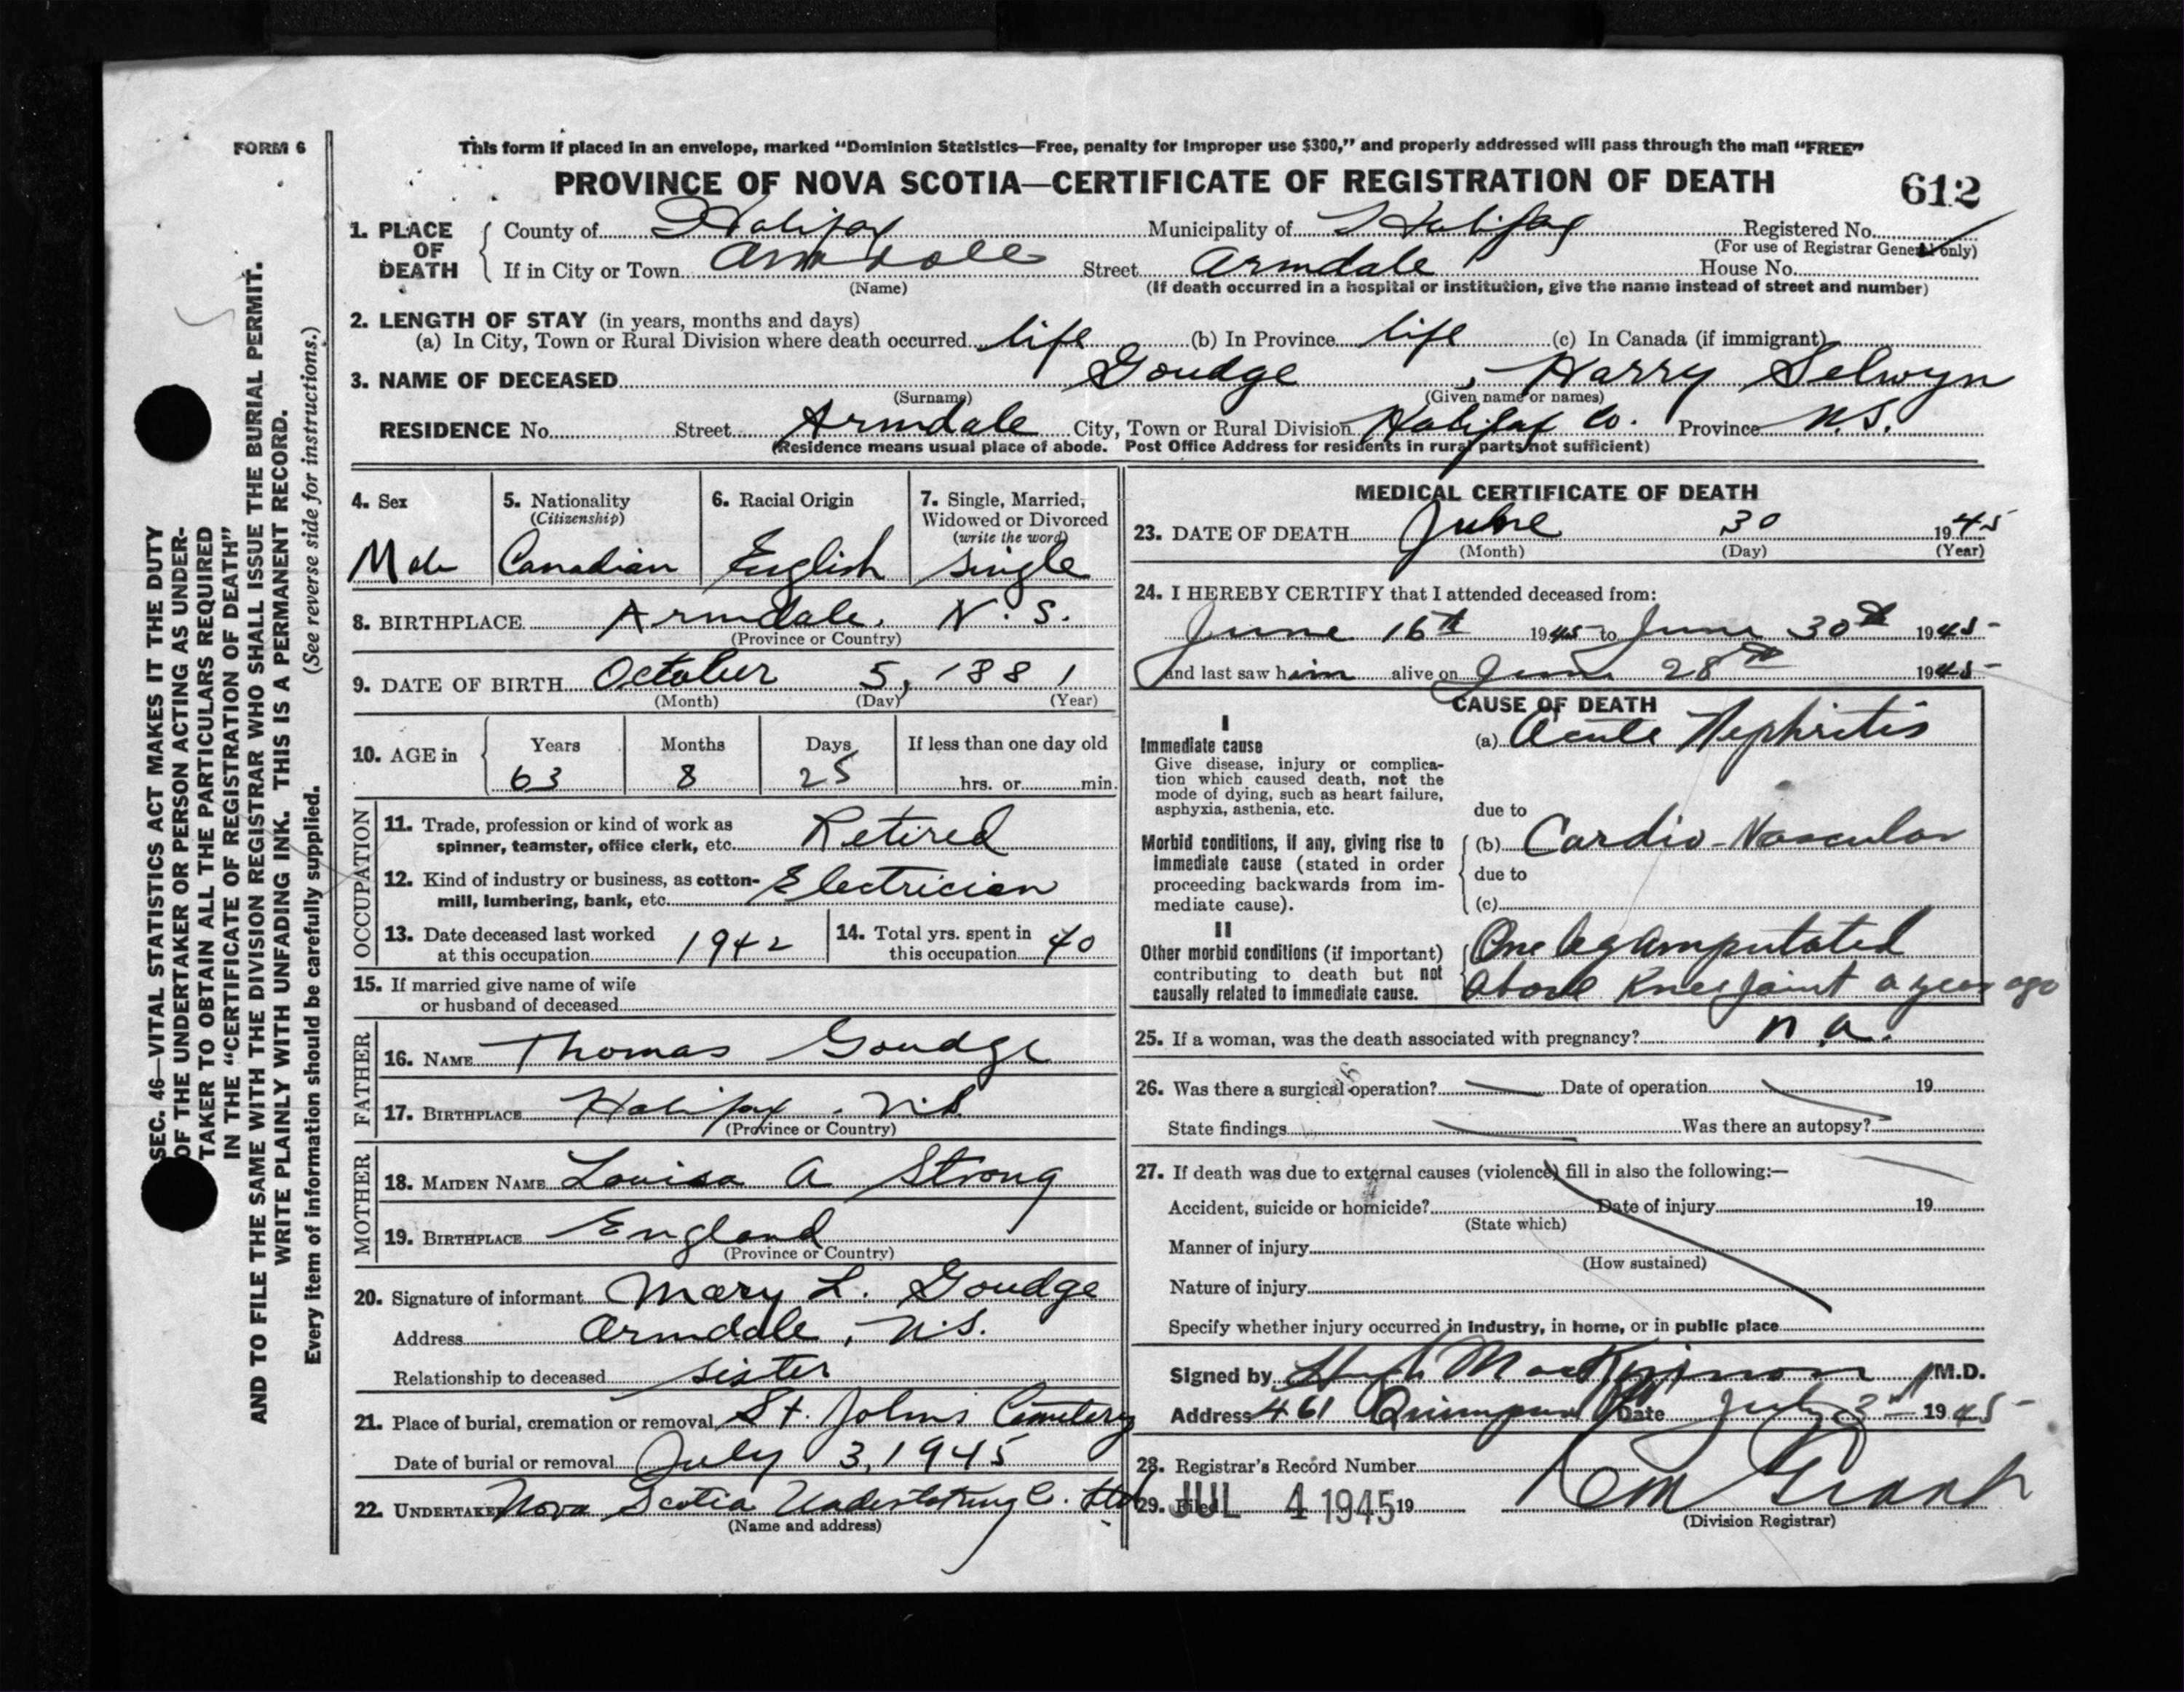 FORM 6
This form if placed in an envelope, marked "Dominion Statistics—Free, penalty for improper use $300," and properly addressed will pass through the mail "FREE"
PROVINCE OF NOVA SCOTIA—CERTIFICATE OF REGISTRATION OF DEATH
612
1. PLACE OF DEATH
County of Halifax Municipality of Halifax Registered No.
(For use of Registrar General only)
If in City or Town Armdale Street Armdale House No.
(Name) (If death occurred in a hospital or institution, give the name instead of street and number)
2. LENGTH OF STAY (in years, months and days)
(a) In City, Town or Rural Division where death occurred life (b) In Province life (c) In Canada (if immigrant)
3. NAME OF DECEASED Goudge, Harry Selwyn
(Surname) (Given name or names)
RESIDENCE No. Street Armdale City, Town or Rural Division Halifax Co. Province N.S.
(Residence means usual place of abode. Post Office Address for residents in rural parts not sufficient)
4. Sex
Male
5. Nationality
(Citizenship)
Canadian
6. Racial Origin
English
7. Single, Married,
Widowed or Divorced
(write the word)
single
8. BIRTHPLACE Armdale, N.S.
(Province or Country)
9. DATE OF BIRTH October 5, 1881
(Month) (Day) (Year)
10. AGE in
Years Months Days If less than one day old
63 8 25 hrs. or min.
OCCUPATION
11. Trade, profession or kind of work as
spinner, teamster, office clerk, etc. Retired
12. Kind of industry or business, as cotton-
mill, lumbering, bank, etc. Electrician
13. Date deceased last worked
at this occupation 1942
14. Total yrs. spent in
this occupation 40
15. If married give name of wife
or husband of deceased
FATHER
16. NAME Thomas Goudge
17. BIRTHPLACE Halifax. N.S
(Province or Country)
MOTHER
18. MAIDEN NAME Louisa A Strong
19. BIRTHPLACE England
(Province or Country)
20. Signature of informant Mary L. Goudge
Address Armdale, N.S.
Relationship to deceased sister
21. Place of burial, cremation or removal St. Johns Cemetery
Date of burial or removal July 3, 1945
22. UNDERTAKER Nova Scotia Undertaking Co. Ltd
(Name and address)
MEDICAL CERTIFICATE OF DEATH
23. DATE OF DEATH June 30 1945
(Month) (Day) (Year)
24. I HEREBY CERTIFY that I attended deceased from:
June 16th 1945 to June 30th 1945
and last saw him alive on June 28th 1945
CAUSE OF DEATH
I
Immediate cause
Give disease, injury or complica-
tion which caused death, not the
mode of dying, such as heart failure,
asphyxia, asthenia, etc.
(a) Acute Nephritis
due to
Morbid conditions, if any, giving rise to
immediate cause (stated in order
proceeding backwards from im-
mediate cause).
(b) Cardio-Vascular
due to
(c)
II
Other morbid conditions (if important)
contributing to death but not
causally related to immediate cause.
One leg amputated
above Knee joint a year ago
25. If a woman, was the death associated with pregnancy? n.a.
26. Was there a surgical operation? Date of operation 19
State findings Was there an autopsy?
27. If death was due to external causes (violence) fill in also the following:—
Accident, suicide or homicide? Date of injury 19
(State which)
Manner of injury
(How sustained)
Nature of injury
Specify whether injury occurred in industry, in home, or in public place
Signed by Hugh MacKinnon M.D.
Address 461 Quinpool Rd Date July 3rd 1945
28. Registrar's Record Number
29. Filed JUL 4 1945 19
Grant
(Division Registrar)
SEC. 46—VITAL STATISTICS ACT MAKES IT THE DUTY
OF THE UNDERTAKER OR PERSON ACTING AS UNDER-
TAKER TO OBTAIN ALL THE PARTICULARS REQUIRED
IN THE "CERTIFICATE OF REGISTRATION OF DEATH"
AND TO FILE THE SAME WITH THE DIVISION REGISTRAR WHO SHALL ISSUE THE BURIAL PERMIT.
WRITE PLAINLY WITH UNFADING INK. THIS IS A PERMANENT RECORD.
Every item of information should be carefully supplied. (See reverse side for instructions.)